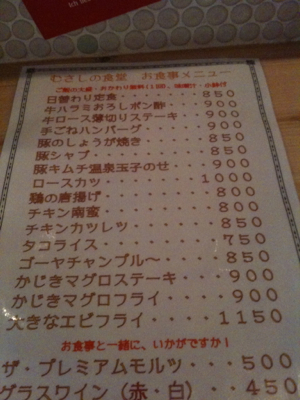 むさしの食堂　お食事メニュー
ご飯の大盛・おかわり無料(1回)、味噌汁・小鉢付
日替わり定食・・・・・・850
牛ハラミおろしポン酢・・・900
牛ロース薄切りステーキ・・900
手ごねハンバーグ・・・・900
豚のしょうが焼き・・・・850
豚シャブ・・・・・・・・850
豚キムチ温泉玉子のせ・・・900
ロースカツ・・・・・・・1000
鶏の唐揚げ・・・・・・・800
チキン南蛮・・・・・・・800
チキンカツレツ・・・・・850
タコライス・・・・・・・750
ゴーヤチャンプル～・・・・850
かじきマグロステーキ・・・900
かじきマグロフライ・・・・900
大きなエビフライ・・・・1150
お食事と一緒に、いかがですか！
ザ・プレミアムモルツ・・・500
グラスワイン（赤・白）・・450